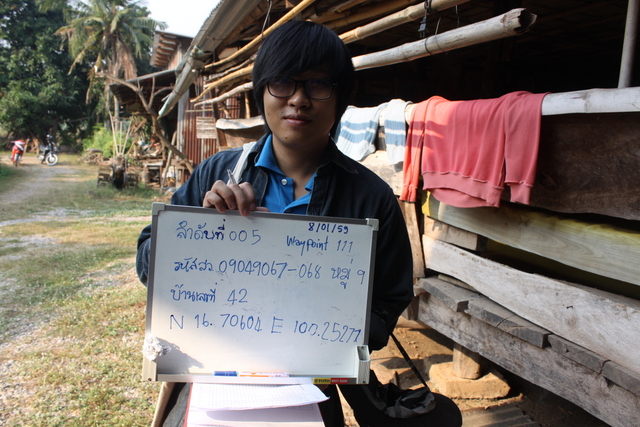 ลำดับที่ 005
8/01/59
Waypoint 111
รหัสสว 09049067-068 หมู่ 9
บ้านเลขที่ 42
N 16.70604 E 100.25277